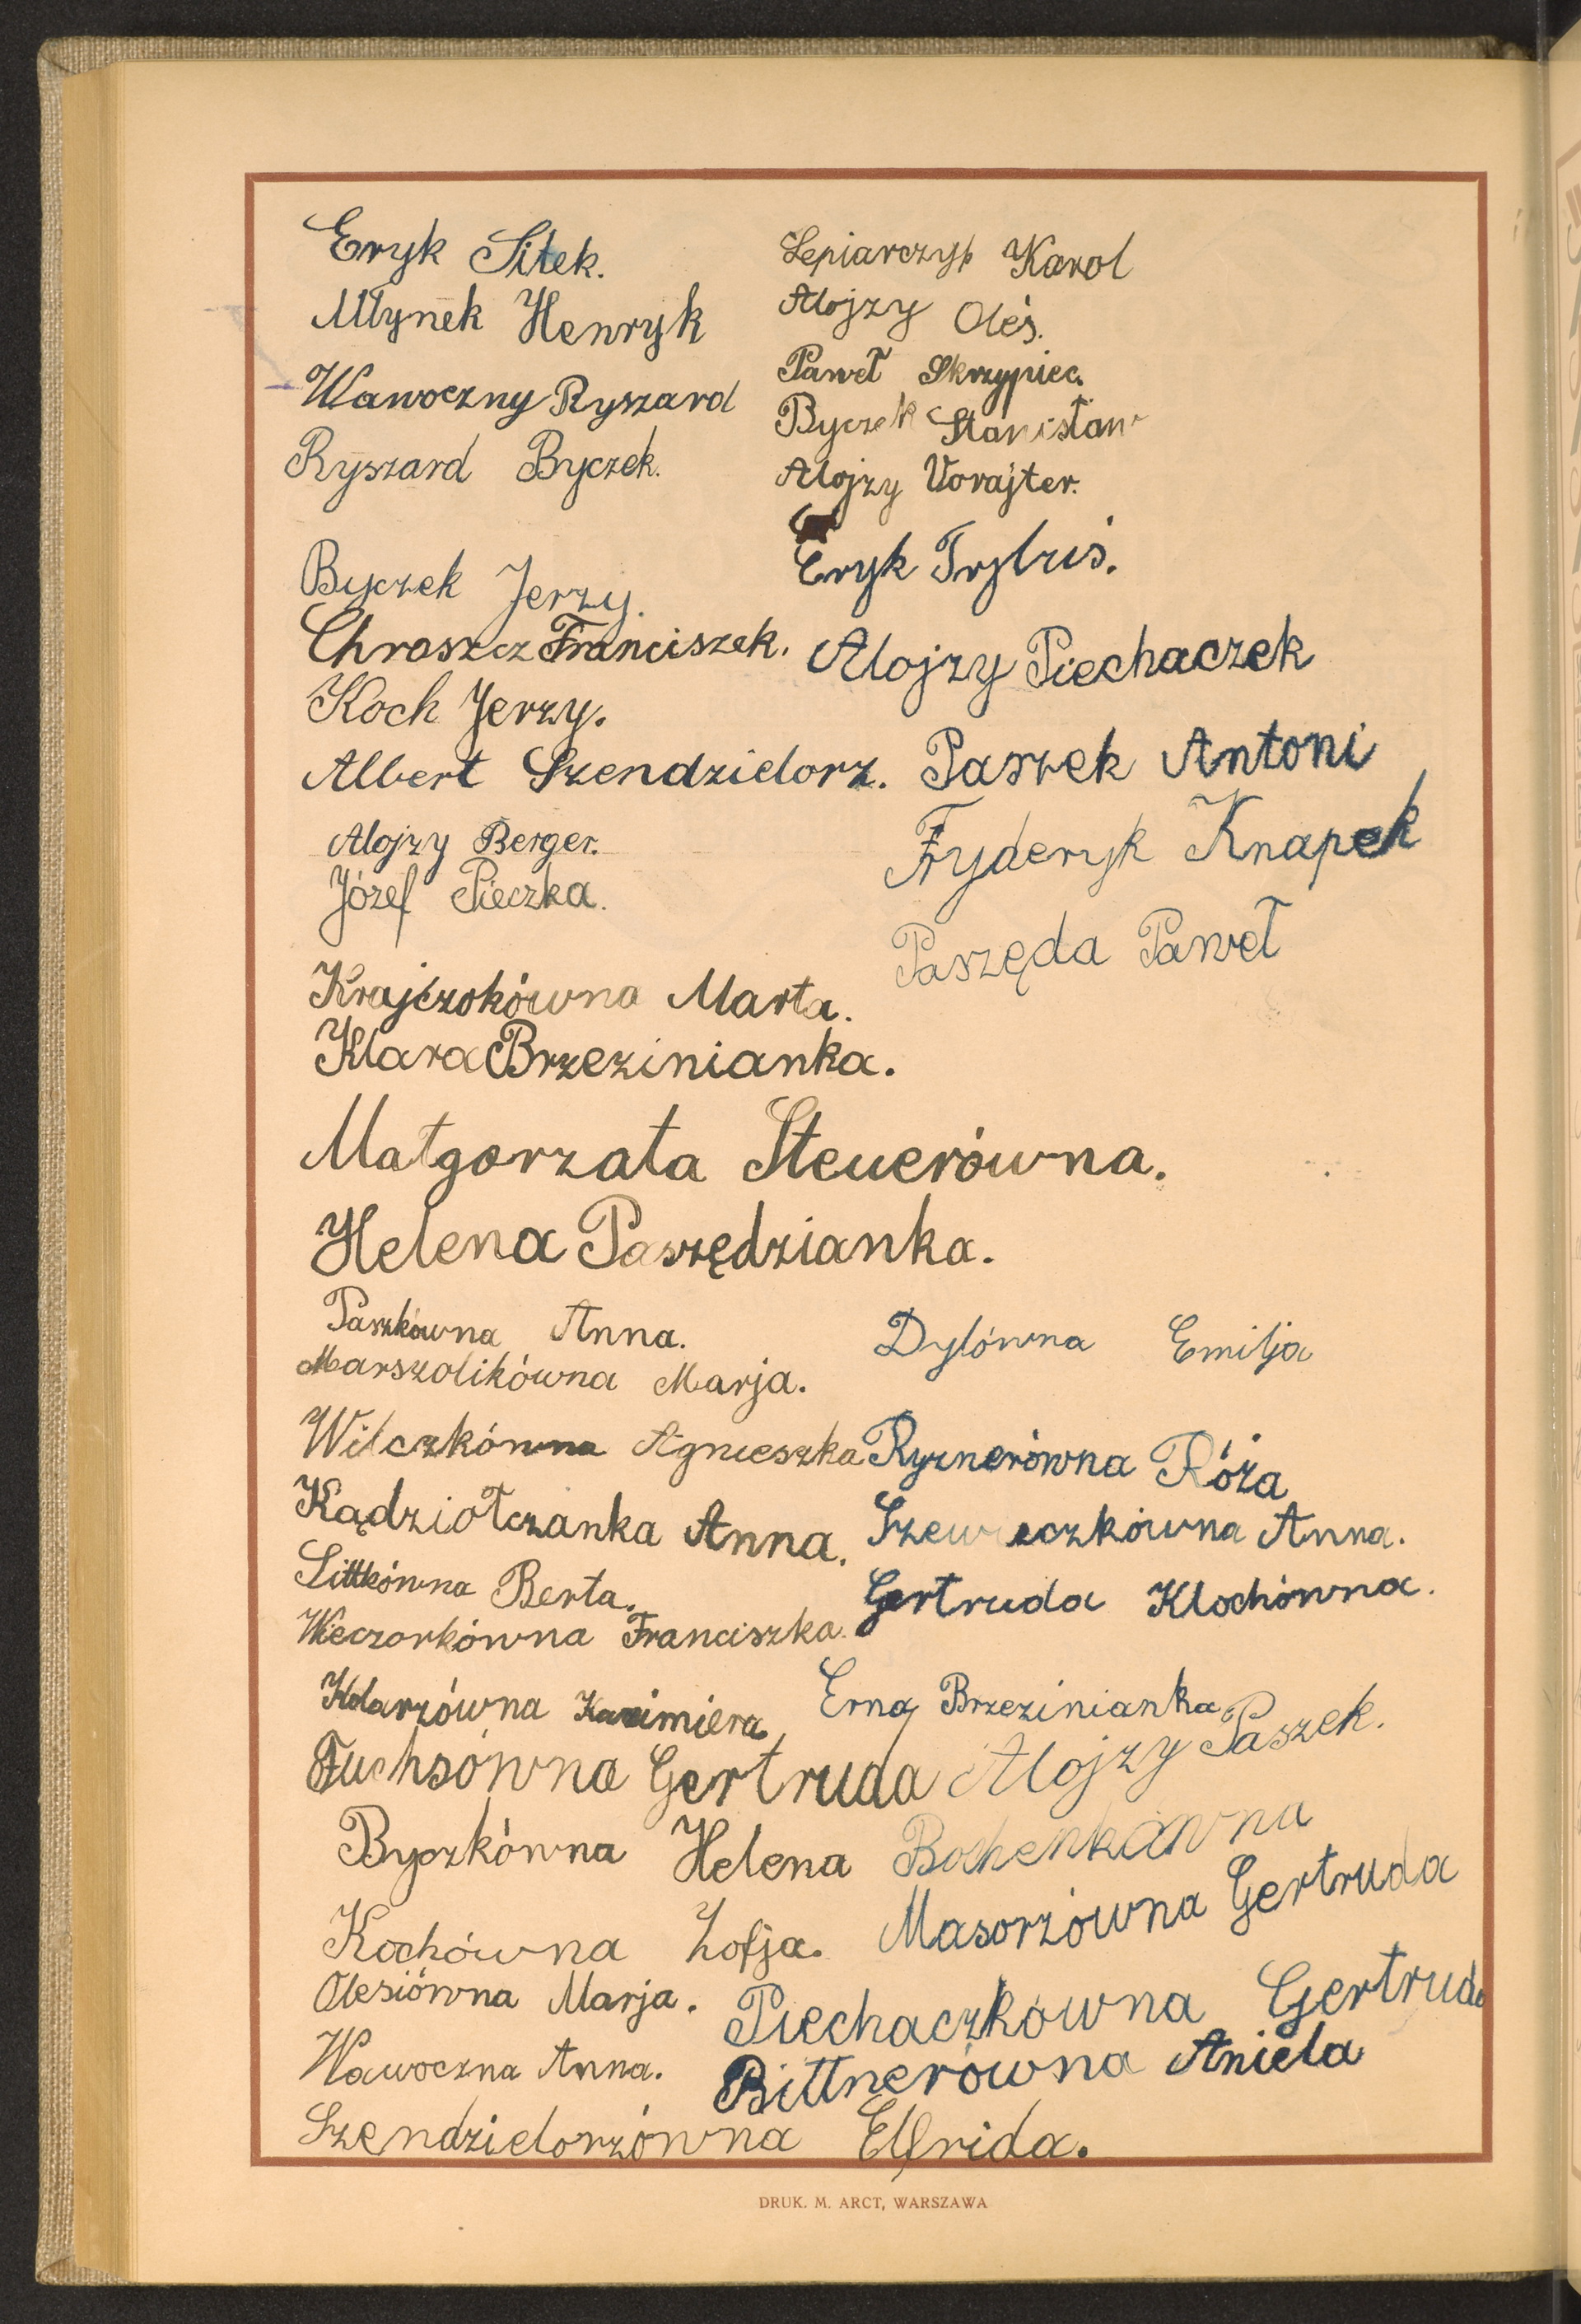 Eryk Sitek.
Młynek Henryk
Wawoczny Ryszard
Ryszard Byczek.
Byczek Jerzy.
Chroszcz Franciszek.
Koch Jerzy.
Albert Szendzielorz.
Alojzy Berger.
Józef Pieczka.
Lepiarczyk Karol
Alojzy Oleś.
Paweł Skrzypiec.
Byczek Stanisław
Alojzy Vorajter.
Eryk
Alojzy Piechaczek
Paszek Antoni
Fryderyk Knapek
Paszęda Paweł
Krajczokówna Marta.
Klara Brzezinianka.
Małgorzata Steuerówna.
Helena Paszędzianka.
Paszkówna Anna.
Marszolikówna Marja.
Wilczkówna Agnieszka
Kądziołczanka Anna.
Littkówna Berta.
Wieczorkówna Franciszka.
Kolarzówna Kazimiera
Fuchsówna Gertruda
Byczkówna Helena
Kochówna Zofja.
Olesiówna Marja.
Wawoczna Anna.
Szendzielorzówna Elfrida.
Dylówna Emilja
Rysnerówna Róża
Szeweczkówna Anna.
Gertruda Klochówna.
Erna Brzezinianka
Alojzy Paszek.
Bochenkówna
Masorzówna Gertruda
Piechaczkówna Gertruda
Bittnerówna Aniela
DRUK. M. ARCT, WARSZAWA